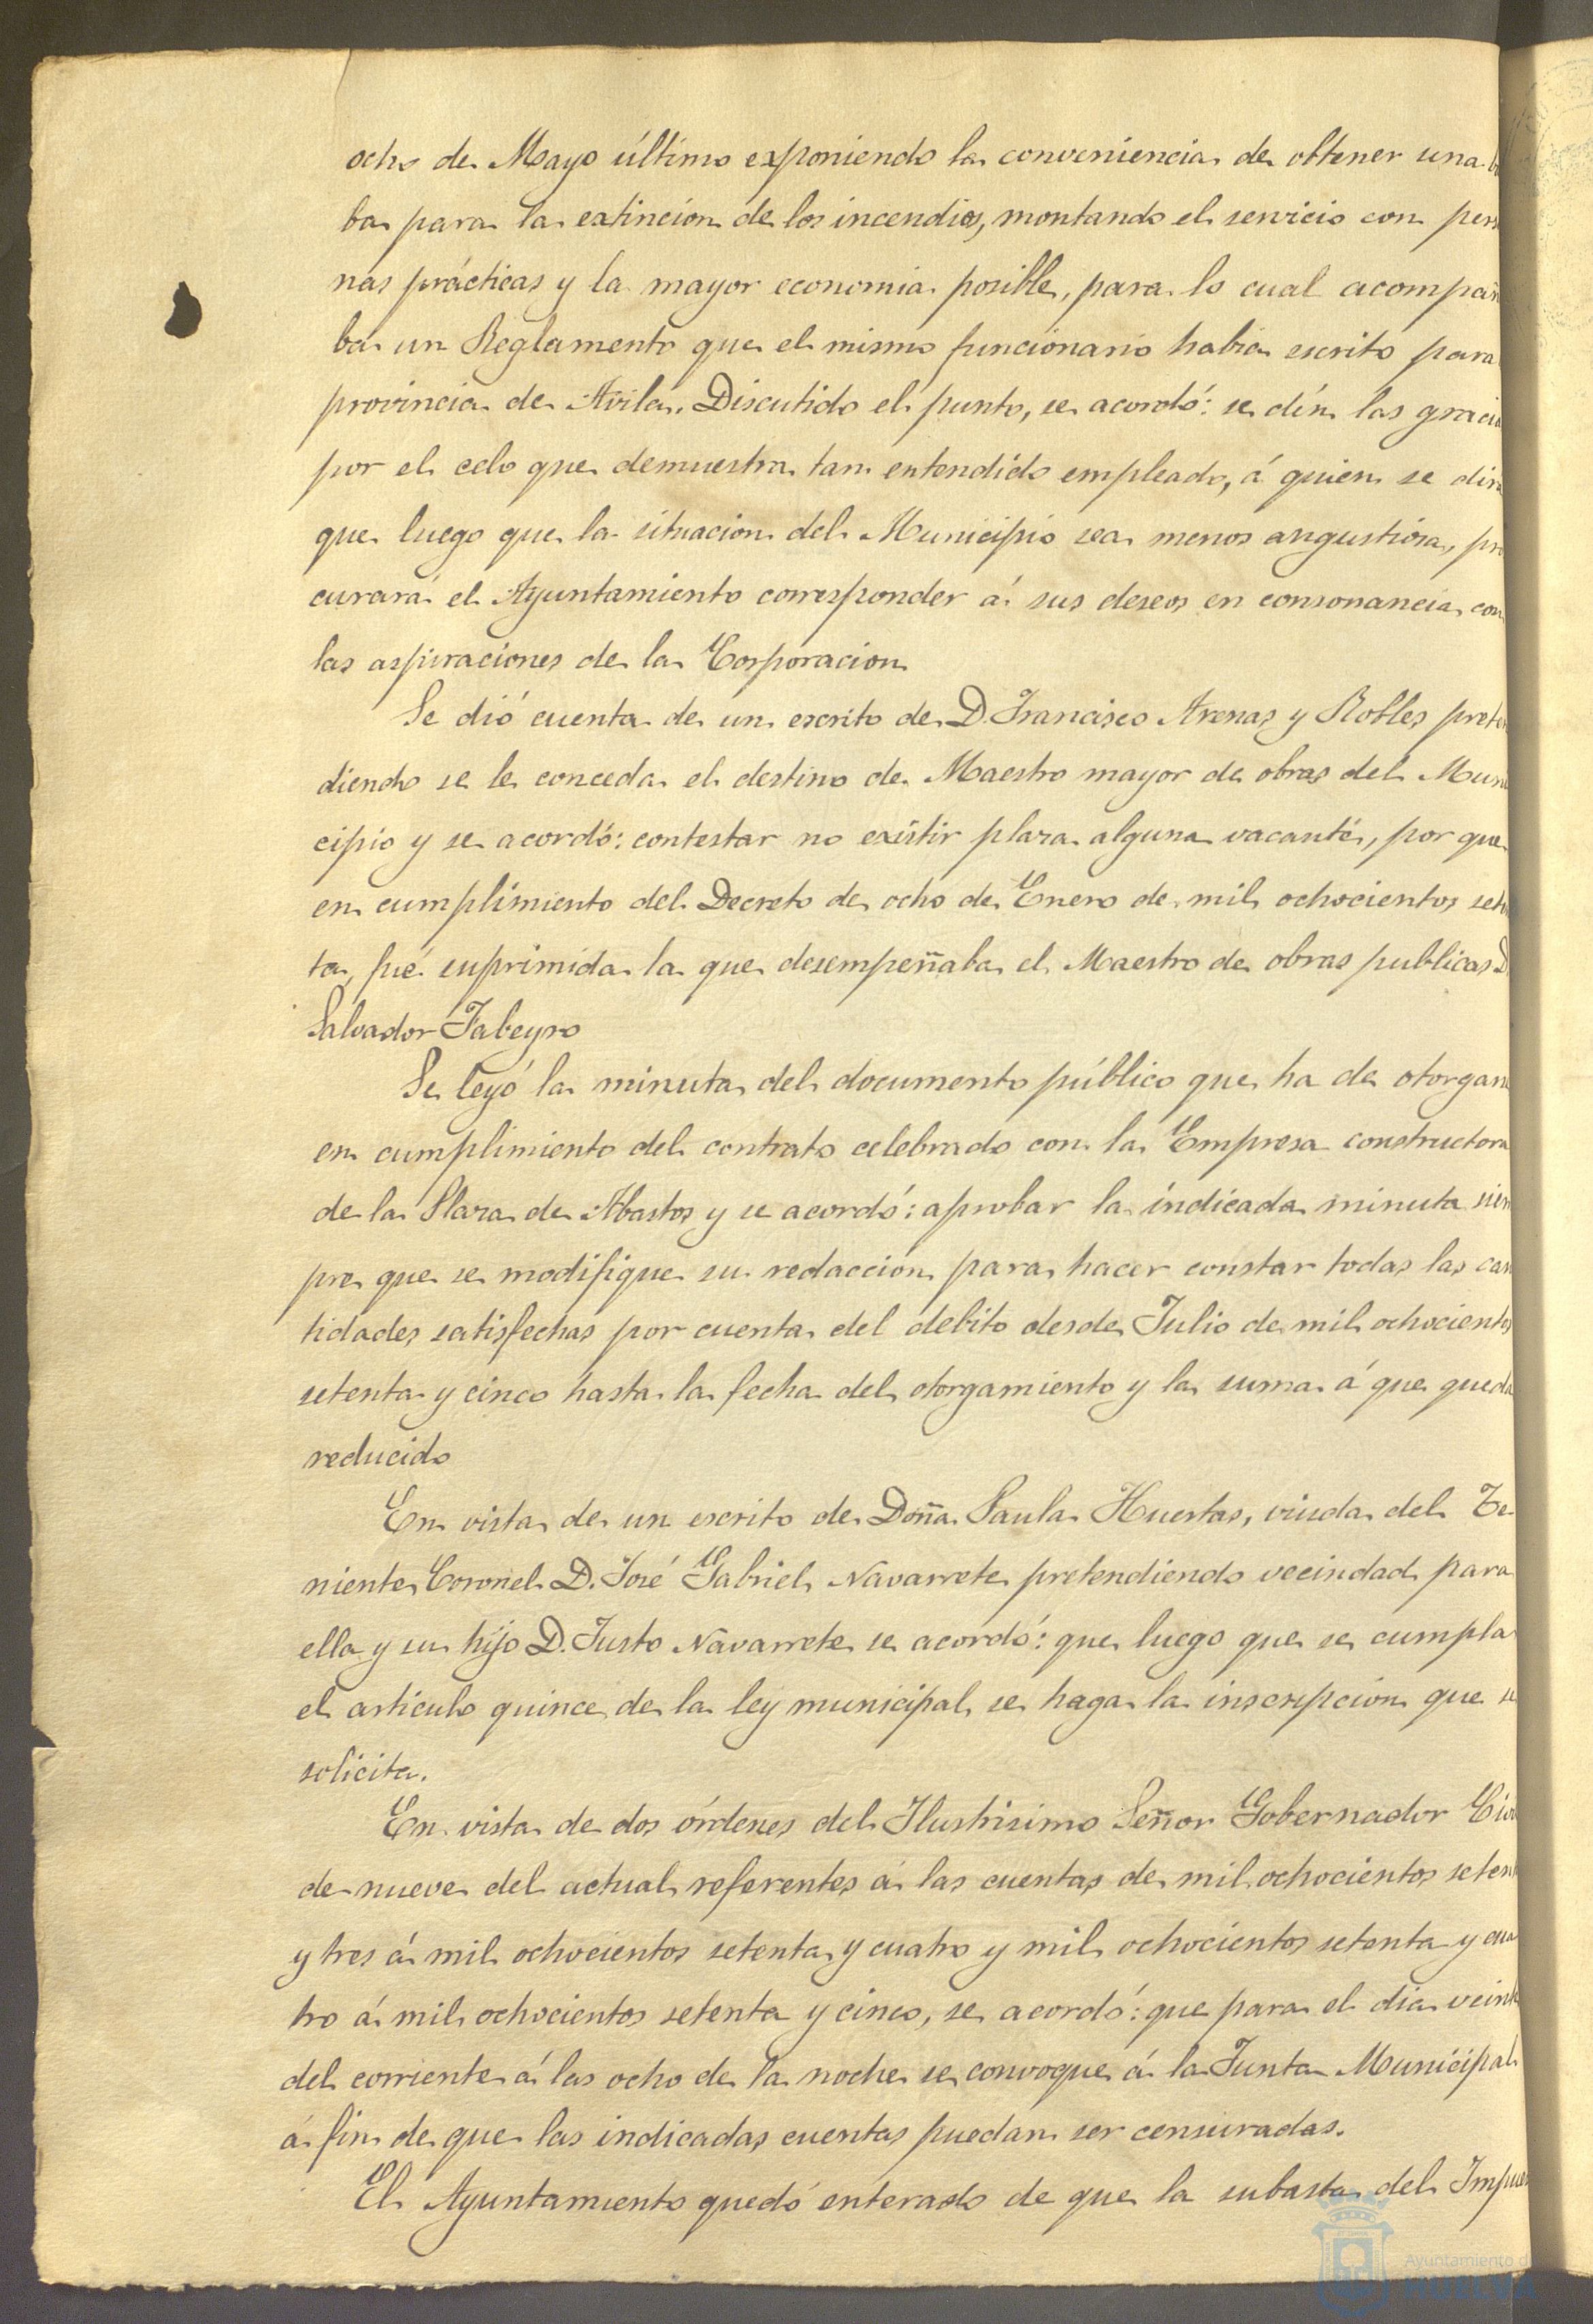 ocho de Mayo último exponiendo la conveniencia de obtener una
ba para la extincion de los incendios, montando el servicio con pers
nas prácticas y la mayor economia posible, para lo cual acompañ
ba un Reglamento que el mismo funcionario habia escrito para
provincia de Avila. Discutido el punto, se acordó: se dén las gracia
por el celo que demuestra tan entendido empleado, á quien se dirá
que luego que la situacion del Municipio sea menos angustiosa, pro
curará el Ayuntamiento corresponder á sus deseos en consonancia con
las aspiraciones de la Corporacion
Se dió cuenta de un escrito de D. Francisco Arenas y Robles preten
diendo se le conceda el destino de Maestro mayor de obras del Muni
cipio y se acordó: contestar no existir plaza alguna vacante, por que
en cumplimiento del Decreto de ocho de Enero de mil ochocientos seten
ta, fué suprimida la que desempeñaba el Maestro de obras publicas D
Salvador Fabeyro
Se leyó la minuta del documento público que ha de otorgars
en cumplimiento del contrato celebrado con la Empresa constructora
de la Plaza de Abastos y se acordó: aprobar la indicada minuta siem
pre que se modifique su redaccion para hacer constar todas las can
tidades satisfechas por cuenta del debito desde Julio de mil ochocientos
setenta y cinco hasta la fecha del otorgamiento y la suma á que queda
reducido
En vista de un escrito de Doña Paula Huertas, viuda del Te-
niente Coronel D. José Gabriel Navarrete pretendiendo vecindad para
ella y su hijo D. Justo Navarrete se acordó: que luego que se cumpla
el articulo quince de la ley municipal se haga la inscripcion que se
solicita.
En vista de dos órdenes del Ilustrisimo Señor Gobernador Civil
de nueve del actual referentes á las cuentas de mil ochocientos setent
y tres á mil ochocientos setenta y cuatro y mil ochocientos setenta y cua
tro á mil ochocientos setenta y cinco, se acordó: que para el dia veinte
del corriente á las ocho de la noche se convoque á la Junta Municipal
á fin de que las indicadas cuentas puedan ser censuradas.
El Ayuntamiento quedó enterado de que la subasta del Impues
Ayuntamiento d
HUELVA